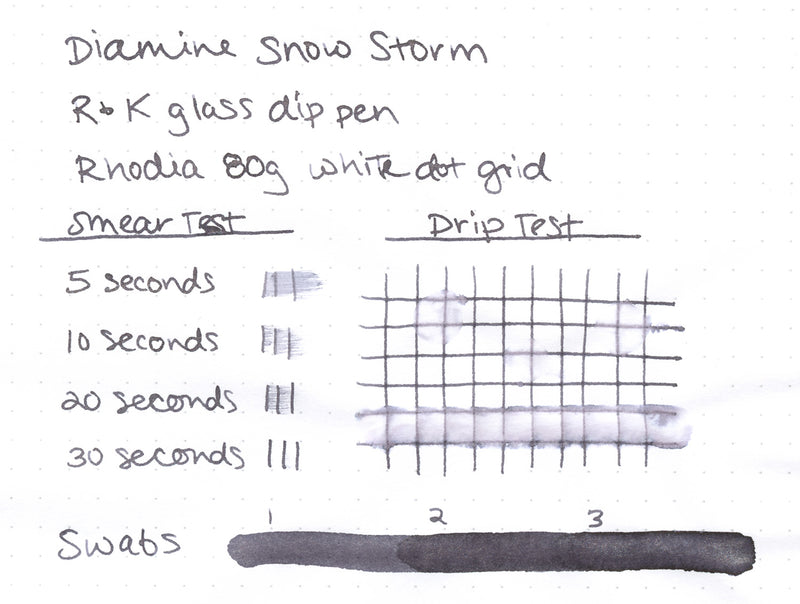 Diamine Snow Storm
R&K glass dip pen
Rhodia 80g white dot grid
Smear Test
Drip Test
5 seconds
10 seconds
20 seconds
30 seconds
1 2 3
Swabs